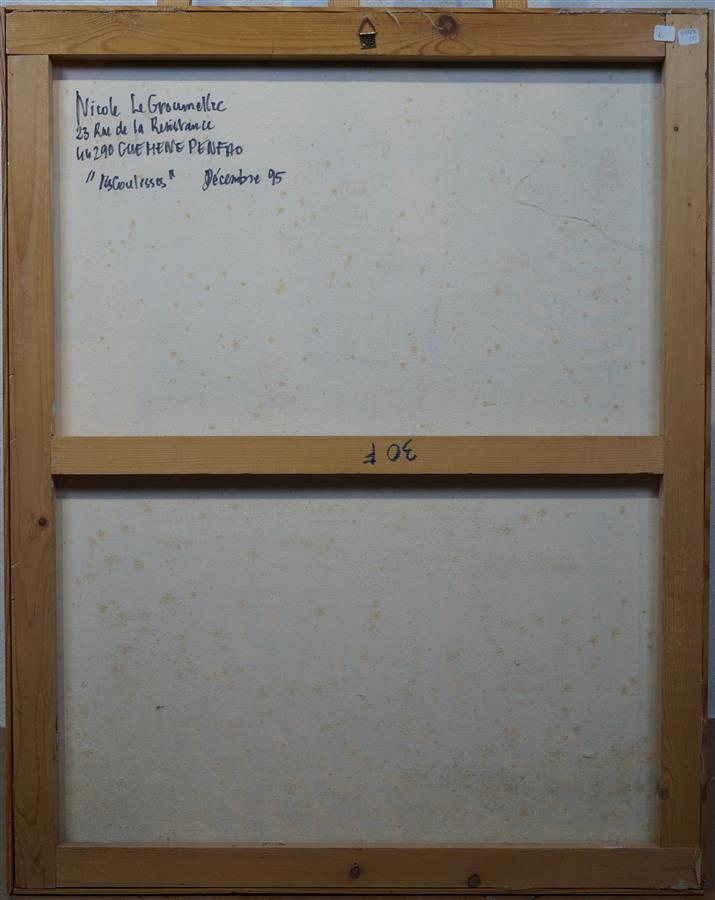 Nicole Le Groumellec
23 Rue de la Resistance
44290 GUEMENE PENFAO
"les Coulisses" Décembre 95
30 F